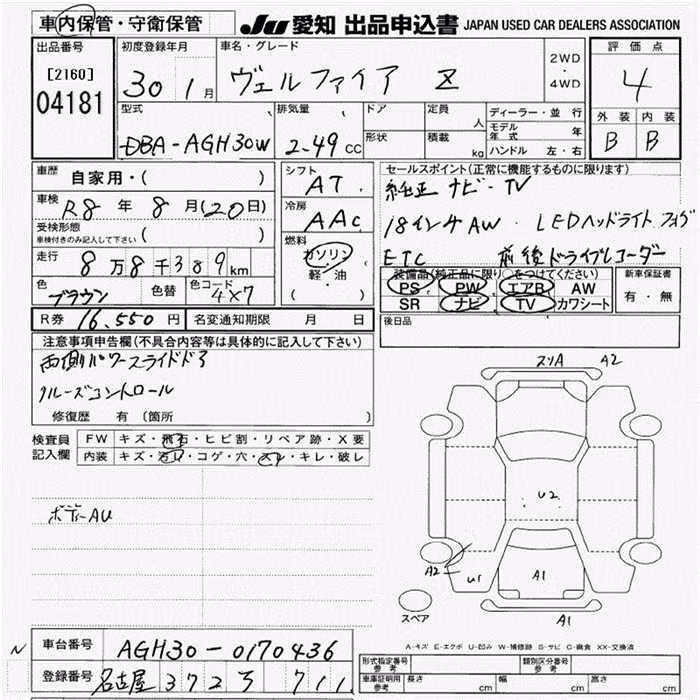 車内保管・守衛保管
JU 愛知 出品申込書 JAPAN USED CAR DEALERS ASSOCIATION
出品番号
[2160]
04181
初度登録年月
30 1月
車名・グレード
ヴェルファイア Z
2WD
・
4WD
評価点
4
外装 内装
B B
型式
DBA-AGH30W
排気量
2-49 CC
ドア
形状
定員 人
積載 kg
ディーラー・並行
モデル年式 年
ハンドル 左・右
車歴 自家用・( )
車検 R8年 8月(20日)
受検形態
車検付きのみ記入して下さい ( )
走行 8万8千389km
色 ブラウン
色替
色コード 4X7
シフト AT
冷房 AAC
燃料
ガソリン
軽・油
( )
セールスポイント(正常に機能するものに限ります)
純正ナビ・TV
18インチAW・LEDヘッドライト フォグ
ETC 前後ドライブレコーダー
装備品(純正品に限り○をつけてください)
PS PW エアB AW
SR ナビ TV カワシート
新車保証書
有・無
R券 16,550円 名変通知期限 月 日
後日品
注意事項申告欄(不具合内容等は具体的に記入して下さい)
両側パワースライドドア
クルーズコントロール
修復歴 有 (箇所 )
検査員記入欄
FW キズ・飛石・ヒビ割・リペア跡・X要
内装 キズ・汚レ・コゲ・穴・スレ・キレ・破レ
ボデーAU
スリA A2
U2
A2 U1 A1
A1
スペア
A-キズ E-エクボ U-凹み W-補修跡 S-サビ C-腐食 XX-交換済
N
車台番号 AGH30-0170436
登録番号 名古屋 372 ろ 711
形式指定番号 参考
類別区分番号 参考
車庫証明用 参考 長さ cm 幅 cm 高さ cm